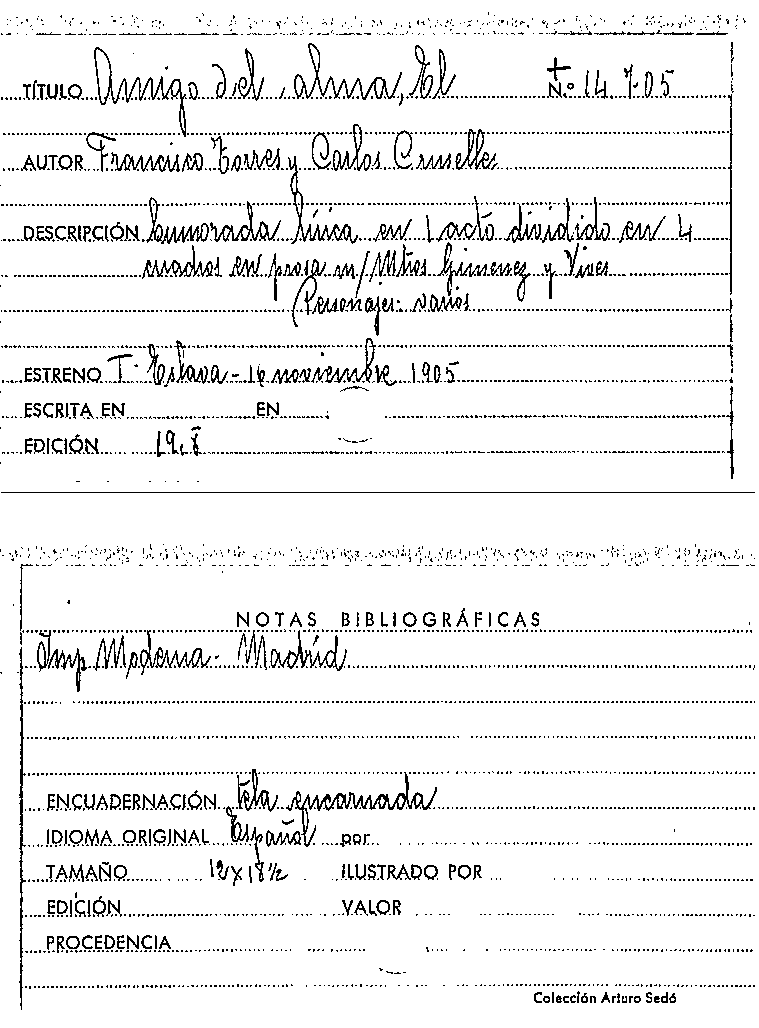 TÍTULO Amigo del alma, El Nº 14.705
AUTOR Francisco Torres y Carlos Cruselles
DESCRIPCIÓN humorada lírica en 1 acto dividido en 4
cuadros en prosa m/ Mtros Gimenez y Vives
Personajes: varios
ESTRENO T. Eslava - 16 noviembre 1905
ESCRITA EN EN
EDICIÓN
NOTAS BIBLIOGRÁFICAS
Imp Moderna - Madrid
ENCUADERNACIÓN tela encarnada
IDIOMA ORIGINAL Español por
TAMAÑO 12x18½ ILUSTRADO POR
EDICIÓN VALOR
PROCEDENCIA
Colección Arturo Sedó